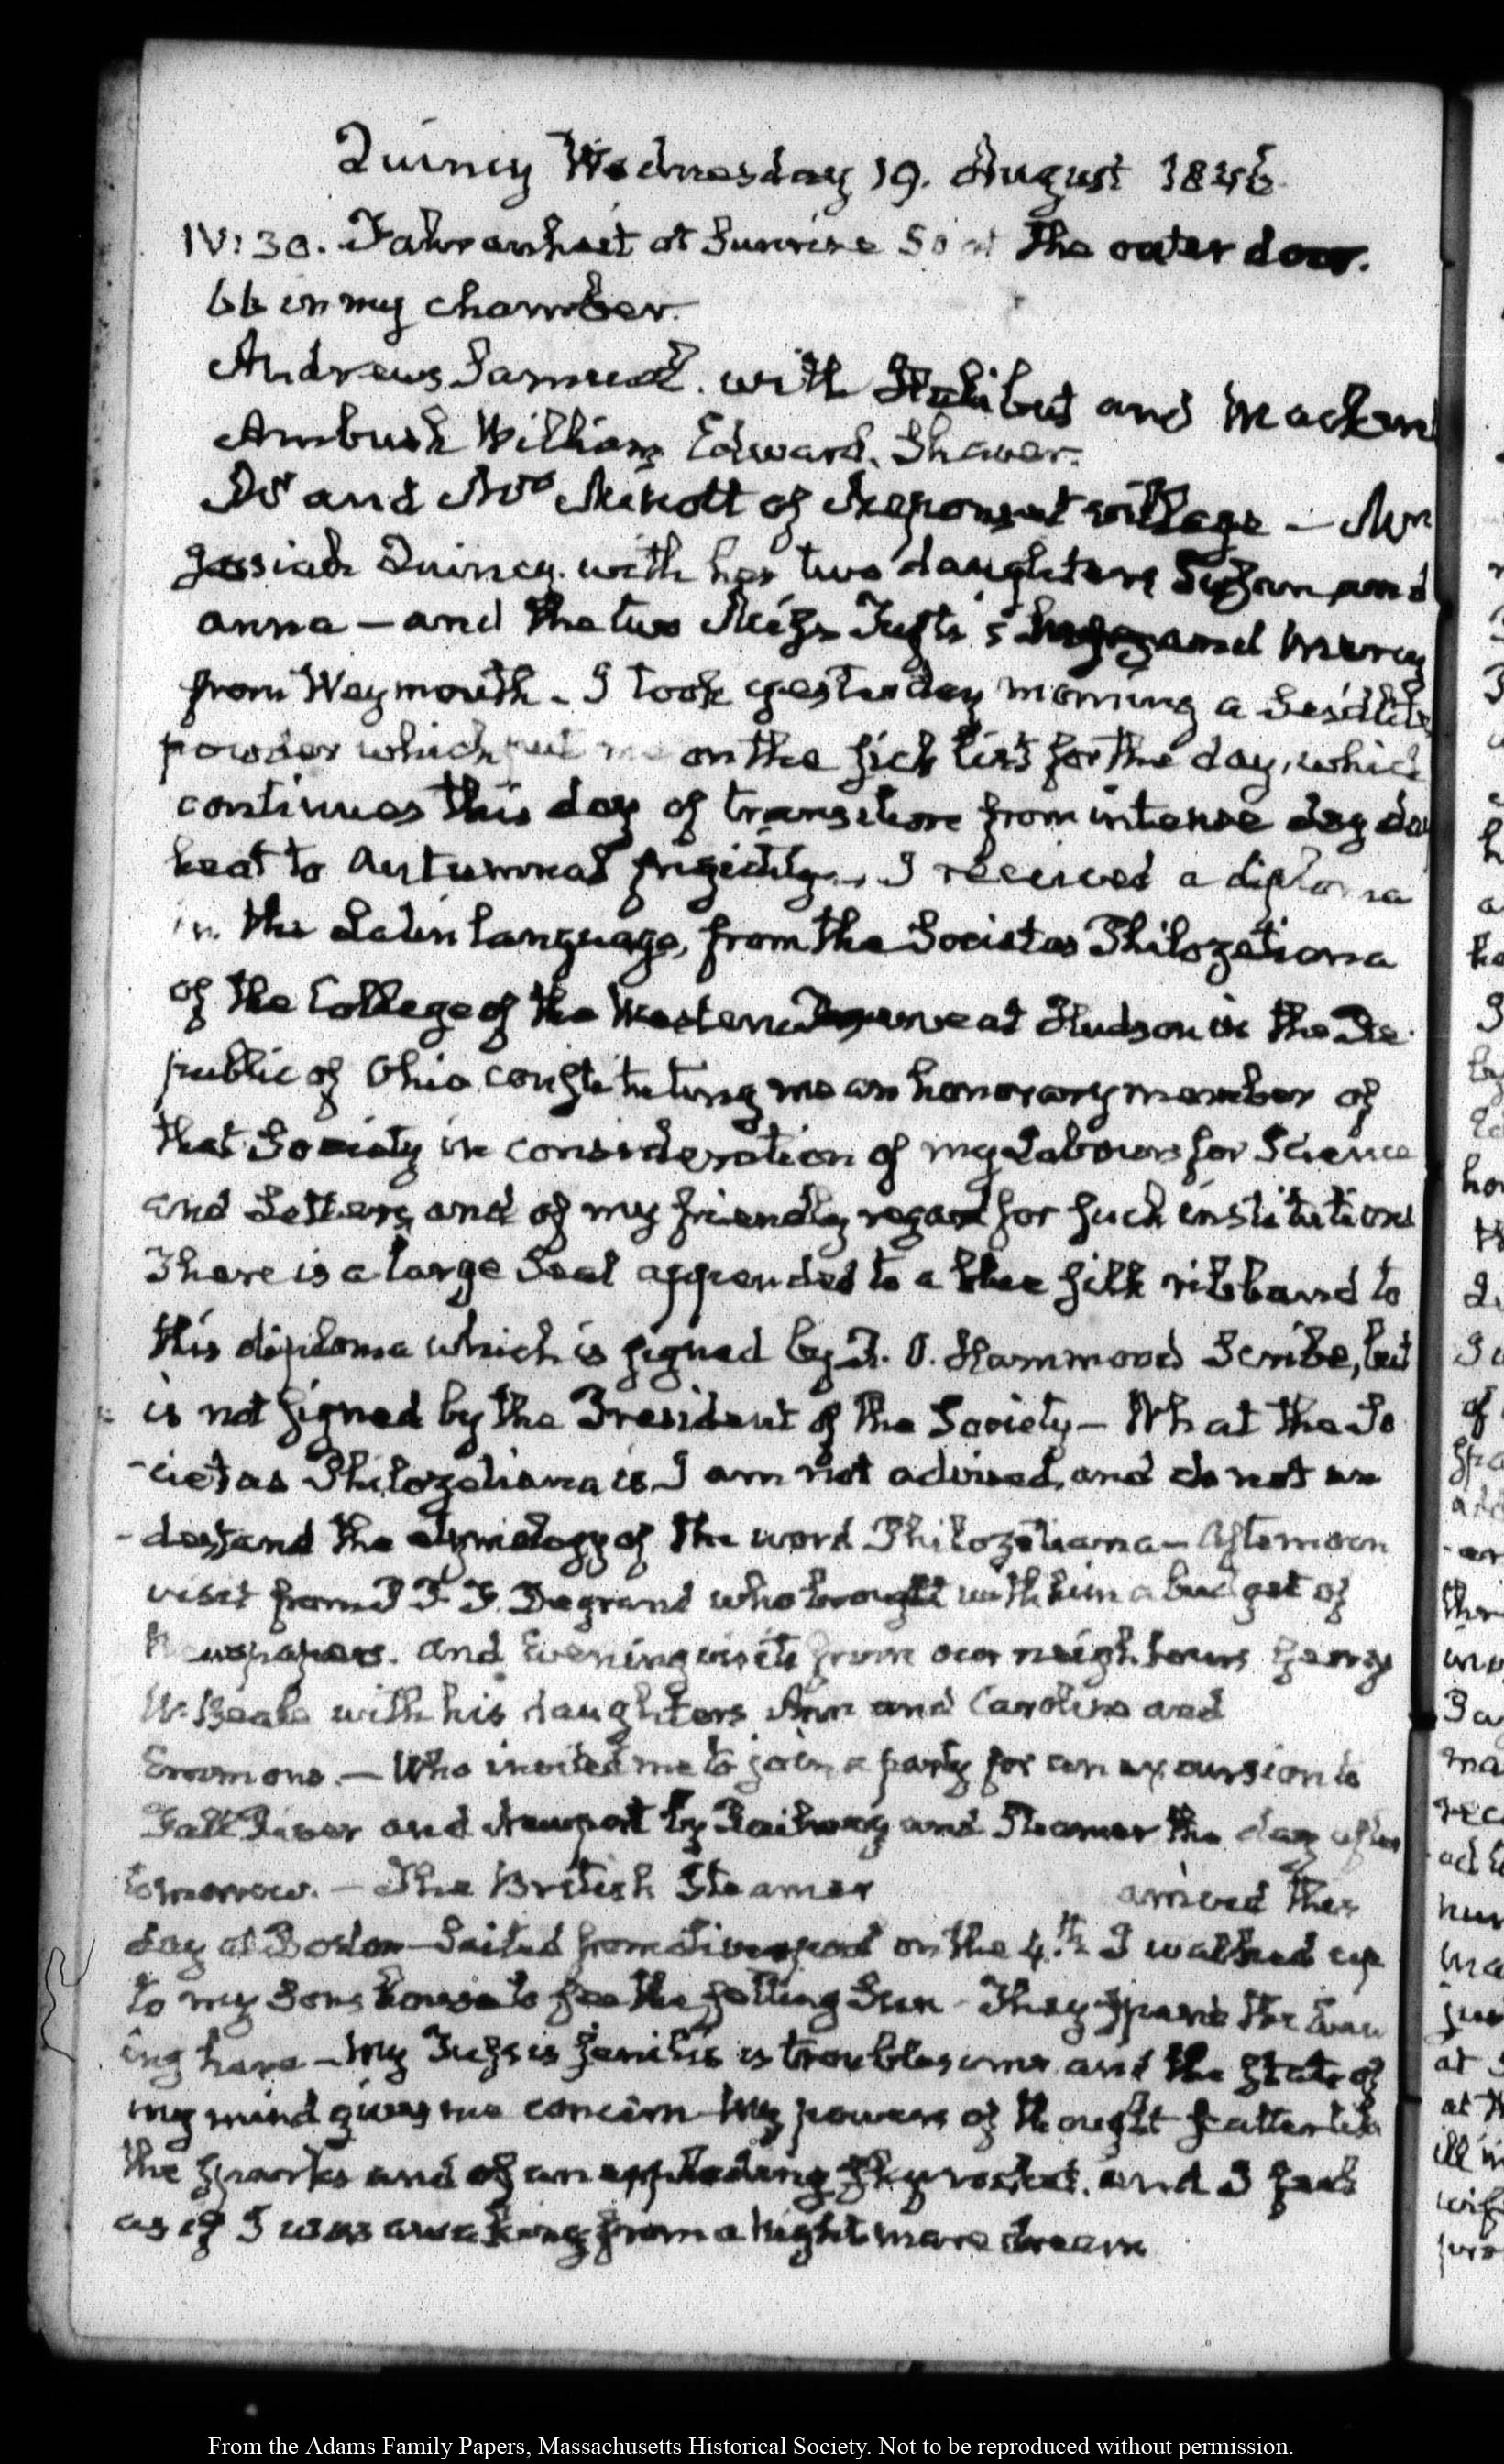 Quincy Wednesday 19. August 1846.
IV:30. Fahrenheit at Sunrise 50 at the outer door.
66 in my chamber.
Andrews Samuel. with Halibut and Mackerel
Ambush William Edward. Shaver.
Dr and Mrs Minott of Neponset village — Mrs
Josiah Quincy. with her two daughters Suzan and
anna — and the two Miss Tufts's and Mercy
from Weymouth. I took yesterday morning a Seidlitz
powder which put me on the sick list for the day, which
continues this day of transition from intense dog day
heat to Autumnal frigidity. I received a diploma
in the Latin language, from the Societas Philozetiana
of the College of the Western Reserve at Hudson in the Re
public of Ohio constituting me an honorary member of
that Society in consideration of my Labours for Science
and Letters, and of my friendly regard for such institutions
There is a large Seal appended to a blue silk ribband to
this diploma which is signed by F. O. Hammond Scribe, but
is not signed by the President of the Society — What the So
-cietas Philozetiana is I am not advised, and do not un
-derstand the etymology of the word Philozetiana — Afternoon
visit from P. P. F. Degrand who brought with him a budget of
Newspapers. and Evening visits from our neighbours George
W. Beale with his daughters Ann and Caroline and
Emmons. — Who invited me to join a party for an excursion to
Fall River and Newport by Railway and Steamer the day after
tomorrow. — The British Steamer arrived this
day at Boston — Sailed from Liverpool on the 4.th I walked up
to my Sons house to see the setting Sun — They the Even
ing here — My Tussis senilis is troublesome and the state of
my mind gives me concern My powers of thought scatter like
the sparks and of an exploding sky rocket. and I feel
as if I was awaking from a Nightmare dream